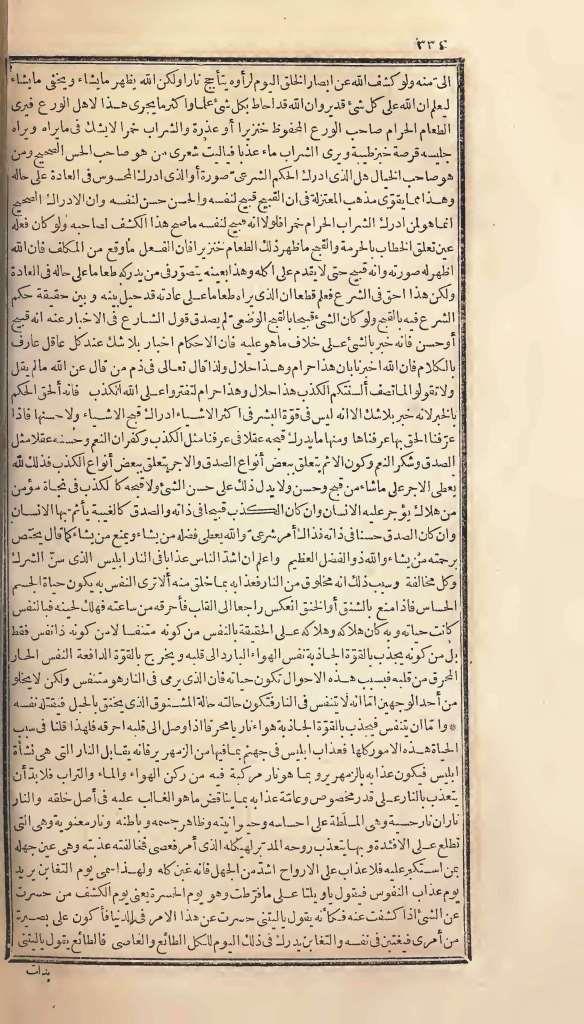 ٣٣٤
الى منه ولو كشف الله عن ابصار الخلق اليوم لرأوه يتأجج نارا ولكن الله يظهر ما يشاء ويخفى ما يشاء
ليعلم ان الله على كل شئ قدير وان الله قد احاط بكل شئ علما وأكثر ما يجرى هذا لاهل الورع فيرى
الطعام الحرام صاحب الورع المحفوظ خنزيرا أو عذرة والشراب خمرا لا يشك فى ما يراه ويراه
جليسه قرصة خبز طيبة ويرى الشراب ماء عذبا فياليت شعرى من هو صاحب الحس الصحيح ومن
هو صاحب الخيال هل الذى ادرك الحكم الشرعى صورة أو الذى ادرك المحسوس فى العادة على حاله
وهذا مما يقوى مذهب المعتزلة فى ان القبيح قبيح لنفسه والحسن حسن لنفسه وان الادراك الصحيح
انما هو لمن ادرك الشراب الحرام خمرا فلولا انه قبيح لنفسه ما صح هذا الكشف لصاحبه ولو كان فعله
عين تعلق الخطاب بالحرمة والقبح ما ظهر ذلك الطعام خنزيرا فان الفعل ما وقع من المكلف فان الله
اظهر له صورته وانه قبيح حتى لا يقدم على اكله وهذا بعينه يتصور فى من يدركه طعاما على حاله فى العادة
ولكن هذا احق فى الشرع فعلم قطعا ان الذى يراه طعاما على عادته قد حيل بينه وبين حقيقة حكم
الشرع فيه بالقبح ولو كان الشئ قبيحا بالقبح الوضعى لم يصدق قول الشارع فى الاخبار عنه انه قبيح
أو حسن فانه خبر بالشئ على خلاف ما هو عليه فان الاحكام اخبار بلا شك عند كل عاقل عارف
بالكلام فان الله اخبرنا بان هذا حرام وهذا حلال ولذا قال تعالى فى ذم من قال عن الله ما لم يقل
ولا تقولوا لما تصف ألسنتكم الكذب هذا حلال وهذا حرام لتفتروا على الله الكذب فانه ألحق الحكم
بالخبر لانه خبر بلا شك الا انه ليس فى قوة البشر فى اكثر الاشياء ادراك قبح الاشياء ولا حسنها فاذا
عرفنا الحق بها عرفناها ومنها ما يدرك قبحه عقلا فى عرفنا مثل الكذب وكفران النعم وحسنه عقلا مثل
الصدق وشكر النعم وكون الاثم يتعلق ببعض أنواع الصدق والاجر يتعلق ببعض أنواع الكذب فذلك لله
يعطى الاجر على ما شاء من قبيح وحسن ولا يدل ذلك على حسن الشئ ولا قبحه كالكذب فى نجاة مؤمن
من هلاك يؤجر عليه الانسان وان كان الكذب قبيحا فى ذاته والصدق كالغيبة يأثم بها الانسان
وان كان الصدق حسنا فى ذاته فذاك أمر شرعى والله يعطى فضله من يشاء ويمنع من يشاء كما قال يختص
برحمته من يشاء والله ذو الفضل العظيم واعلم ان اشد الناس عذابا فى النار ابليس الذى سن الشرك
وكل مخالفة وسبب ذلك انه مخلوق من النار فعذابه بما خلق منه ألا ترى النفس به يكون حياة الجسم
الحساس فاذا منع بالشنق أو الخنق انعكس راجعا الى القلب فأحرقه من ساعته فهلك لحينه فبالنفس
كانت حياته وبه كان هلاكه وهلاكه على الحقيقة بالنفس من كونه متنفسا لا من كونه ذا نفس فقط
بل من كونه يجذب بالقوة الجاذبة نفس الهواء البارد الى قلبه ويخرج بالقوة الدافعة النفس الحار
المحرق من قلبه فبسبب هذه الاحوال تكون حياته فان الذى يرمى فى النار هو متنفس ولكن لا يخلو
من أحد الوجهين اما انه لا يتنفس فى النار فتكون حالته حالة المشنوق الذى يخنق بالحبل فيقتله نفسه
* واما ان يتنفس فيجذب بالقوة الجاذبة هواء ناريا محرقا اذا وصل الى قلبه احرقه فلهذا قلنا فى سبب
الحياة هذه الامور كلها فعذاب ابليس فى جهنم بما فيها من الزمهرير فانه يقابل النار التى هى نشأة
ابليس فيكون عذابه بالزمهرير وبما هو نار مركبة فيه من ركن الهواء والماء والتراب فلا بد أن
يتعذب بالنار على قدر مخصوص وعامة عذابه بما يناقض ما هو الغالب عليه فى أصل خلقه والنار
ناران نار حسية وهى المسلطة على احساسه وحيوانيته وظاهر جسمه وباطنه ونار معنوية وهى التى
تطلع على الافئدة وبها يتعذب روحه المدبر لهيكله الذى أمر فعصى فمخالفته عذبته وهى عين جهله
بمن استكبر عليه فلا عذاب على الارواح اشد من الجهل فانه غبن كله ولهذا سمى يوم التغابن يريد
يوم عذاب النفوس فيقول يا ويلتا على ما فرطت وهو يوم الحسرة يعنى يوم الكشف من حسرت
عن الشئ اذا كشفت عنه فكأنه يقول يا ليتنى حسرت عن هذا الامر فى الدنيا فأكون على بصيرة
من أمرى فيغتبن فى نفسه والتغابن يدرك فى ذلك اليوم للكل الطائع والعاصى فالطائع يقول يا ليتنى
بذلت